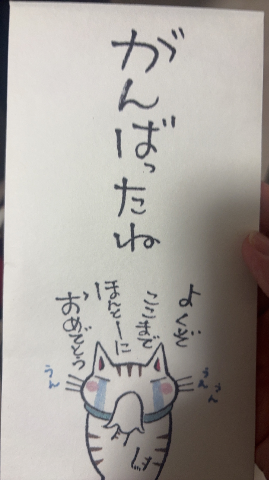 がんばったね
よくぞ
ここまで
ほんとーに
おめでとう
うんうん
うん